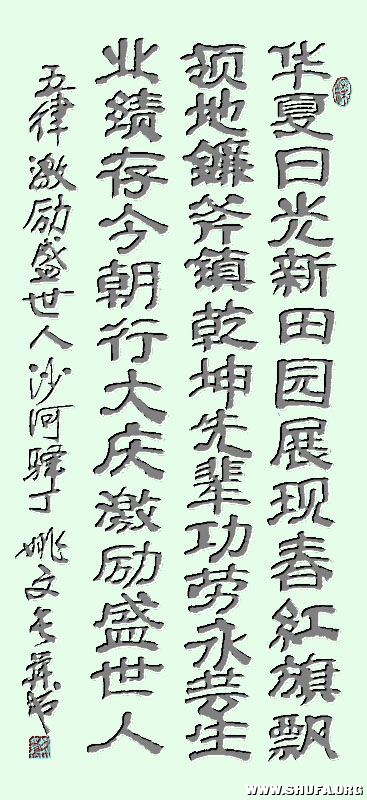 华夏日光新田园展现春紅旗飘
领地鐮斧鎮乾坤先辈功劳永芸生
业績存今朝行大庆激励盛世人
五律激励盛世人沙河驿丁 姚文
WWW.SHUFA.ORG